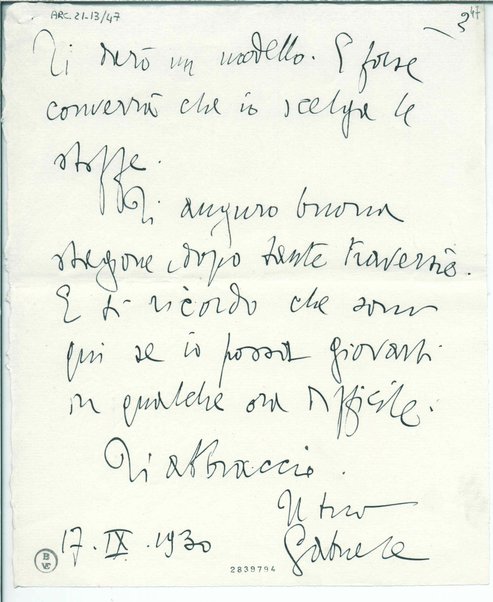 ARC. 21-13/47
47
3
Ti darò un modello. E forse
converrà che io scelga le
stoffe.
Ti auguro buona
stagione, dopo tante traversie.
E ti ricordo che sono
qui se io possa giovarti
in qualche ora difficile.
Ti abbraccio.
Il tuo
Gabriele
17. IX. 1930
B
VE
2839794